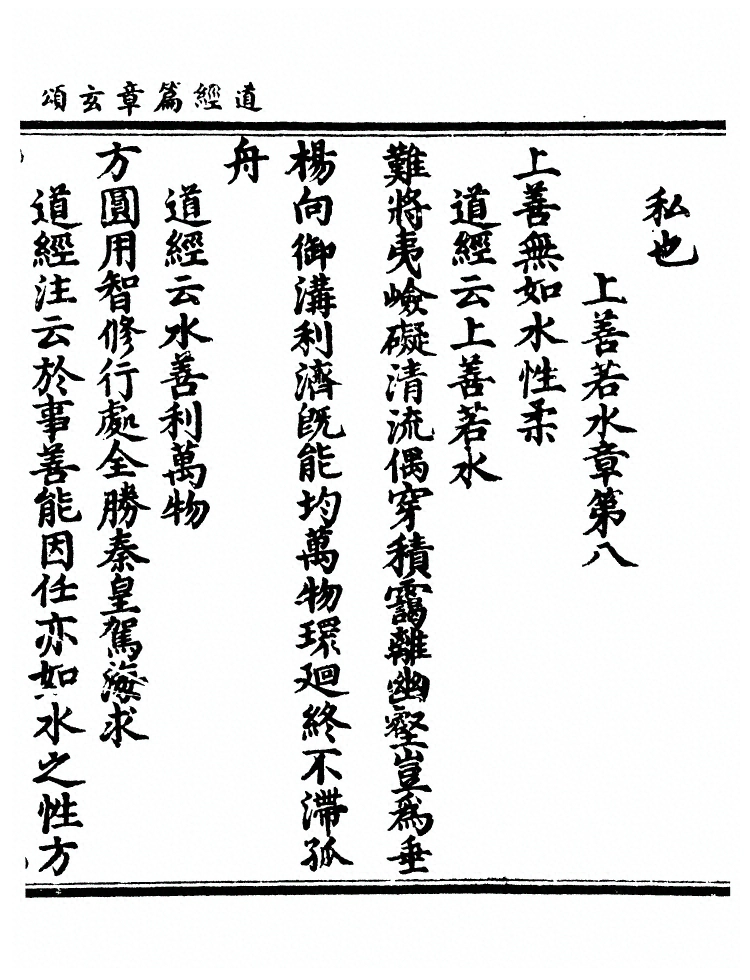 道經篇章玄頌
私也
上善若水章第八
上善無如水性柔
道經云上善若水
難將夷嶮礙清流偶穿積靄離幽壑豈爲垂
楊向御溝利濟旣能均萬物環廻終不滯孤
舟
道經云水善利萬物
方圓用智修行處全勝秦皇駕海求
道經注云於事善能因任亦如水之性方